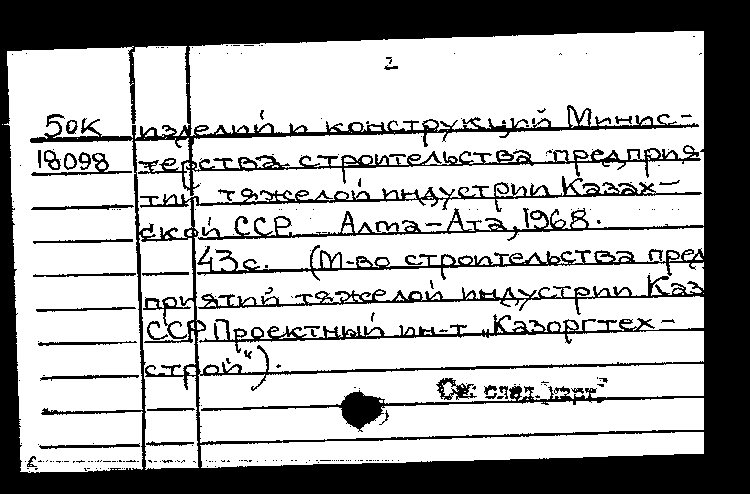 2
50К изделий и конструкций Минис-
18098 терства строительства предприя
тий тяжелой индустрии Казах-
ской ССР. Алма-Ата, 1968.
43с. (М-во строительства пред
приятий тяжелой индустрии Каз
ССР. Проектный ин-т „Казоргтех-
строй").
См. след. карт.